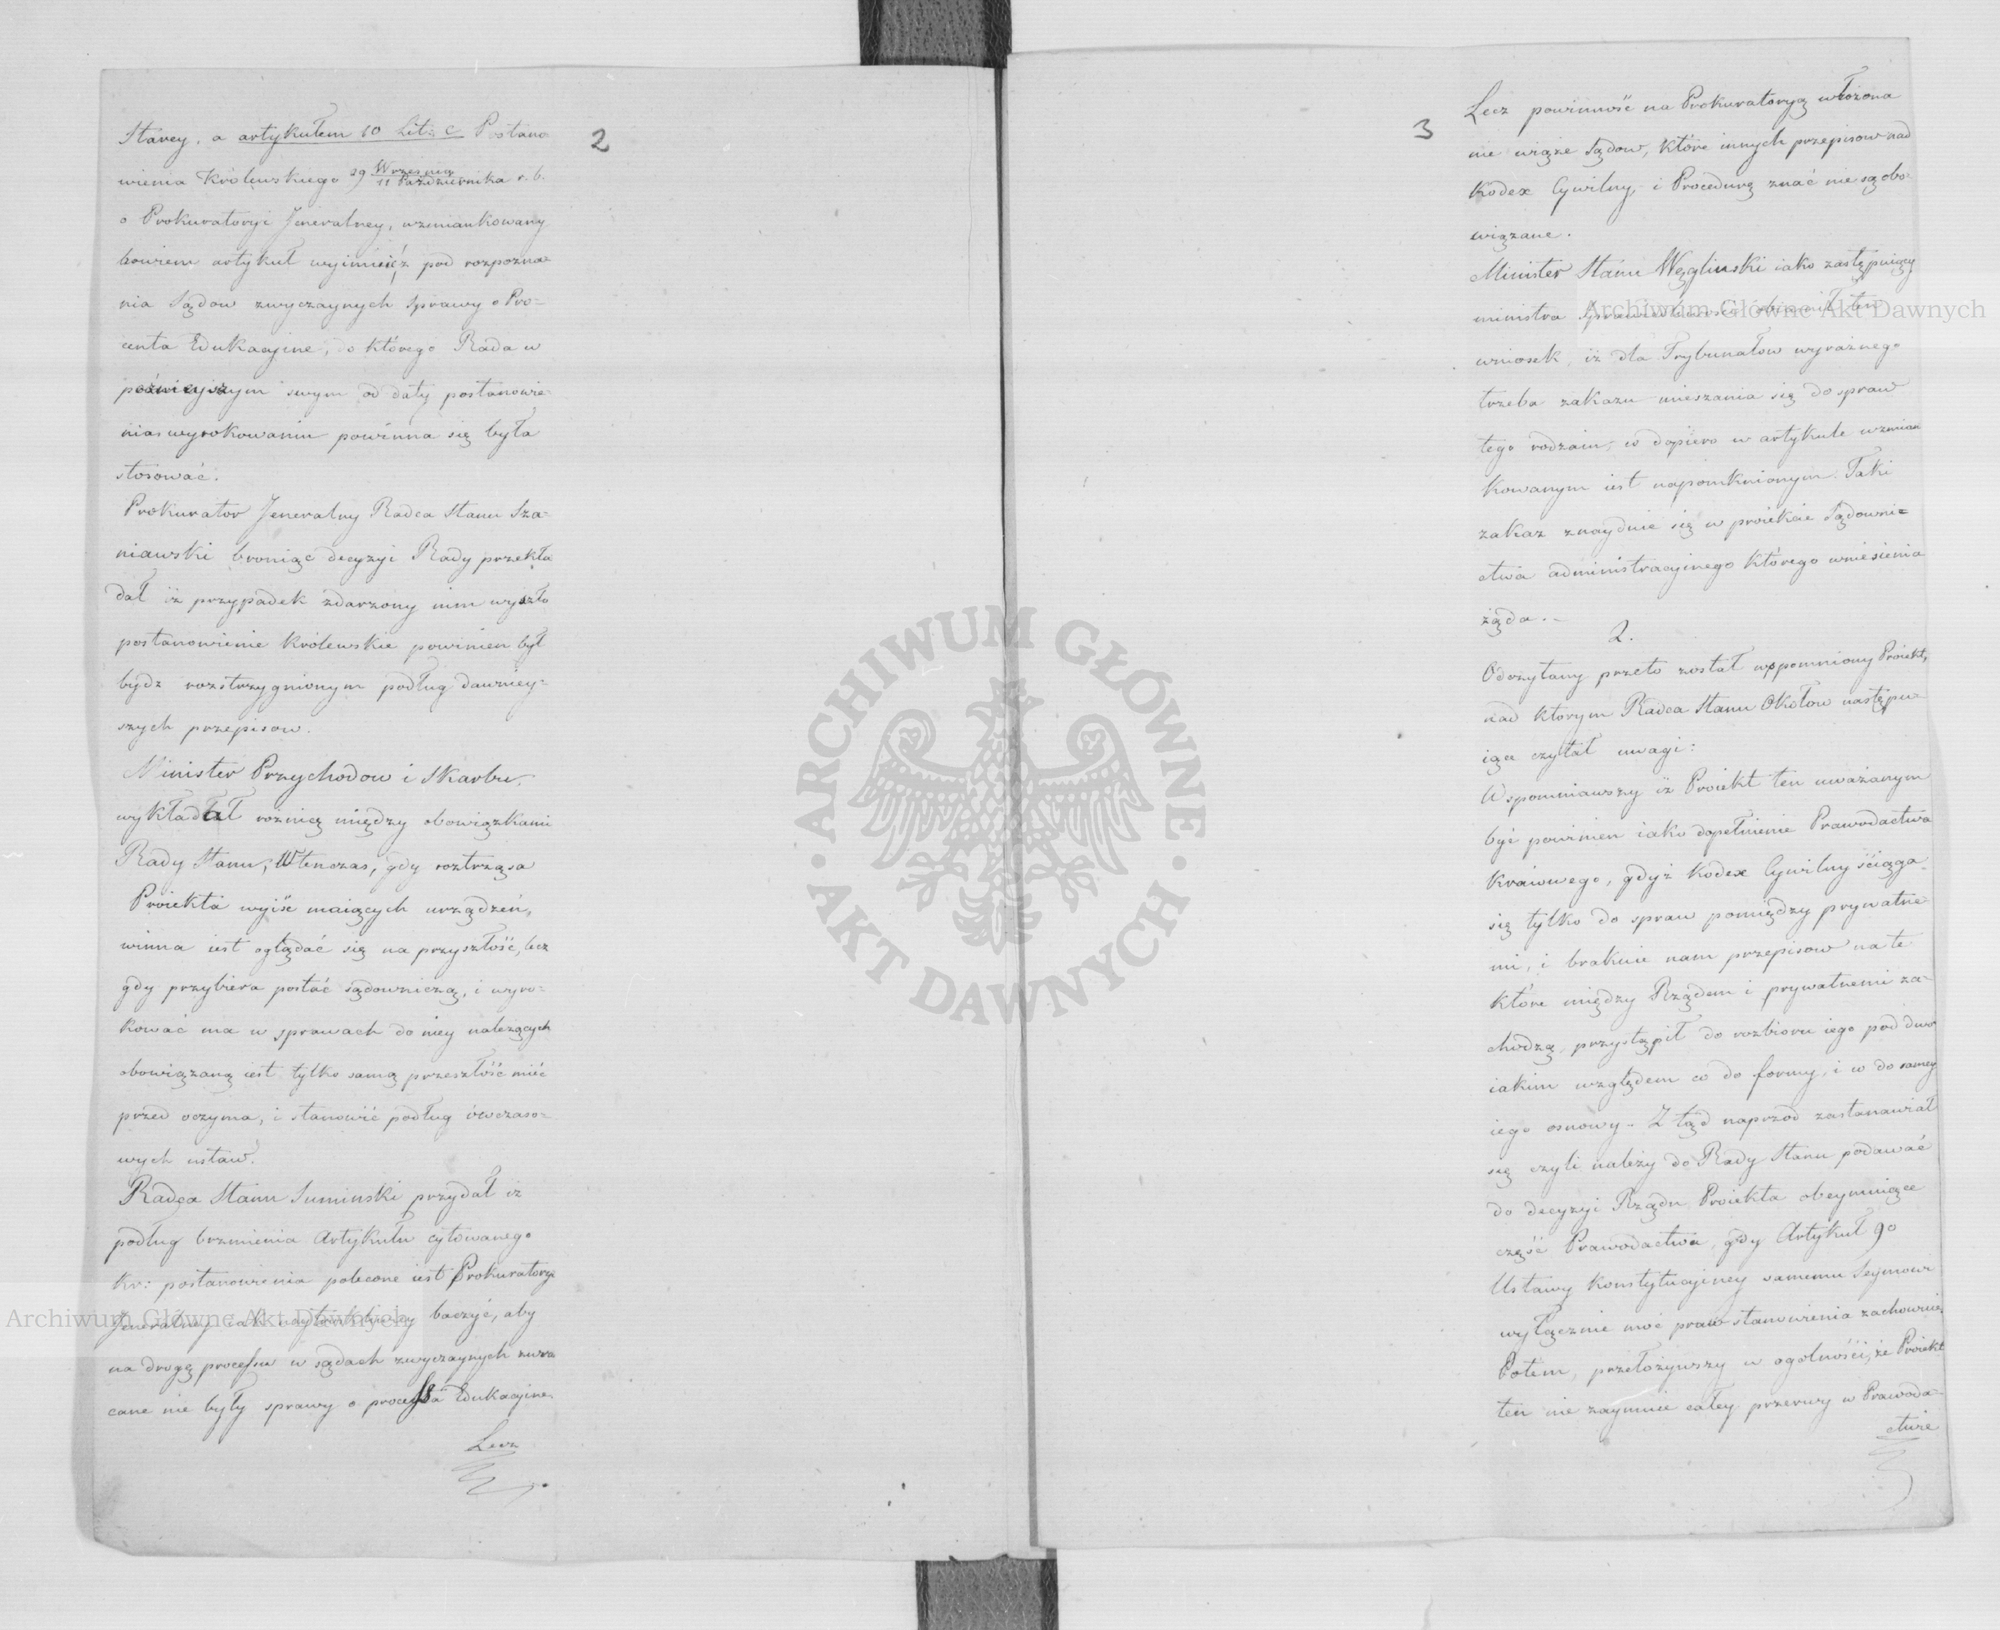 2
Starey, a artykułem 10 Lit: C Postano
wienia Królewskiego 29 Września / 11 Października r. b.
o Prokuratoryi Jeneralney, wzmiankowany
bowiem artykuł wyimuie z pod rozpozna=
nia Sądow zwyczaynych sprawy o Pro=
centa Edukacyine, do którego Rada w
poźnieyszym swym od daty postanowie=
nia wyrokowaniu powinna się była
stosować.
Prokurator Jeneralny Radca Stanu Sza=
niawski broniąc decyzyi Rady przekła
dał iż przypadek zdarzony nim wyszło
postanowienie Królewskie powinien był
bydz rozstrzygnionym podług dawniey=
szych przepisow.
Minister Przychodow i Skarbu,
wykładał rożnicę między obowiązkami
Rady Stanu, Wtenczas, gdy roztrząsa
Proiekta wyiść maiących urządzeń,
winna iest oglądać się na przyszłość, lecz
gdy przybiera postać sądowniczą, i wyro=
kować ma w sprawach do niey należących
obowiązaną iest tylko samą przeszłość mieć
przed oczyma, i stanowić podług ówczaso=
wych ustaw.
Radca Stanu Suminski przydał iż
podług brzmienia Artykułu cytowanego
Kr: postanowienia polecone iest Prokuratoryi
Jeneralney iak naytroskliwiey baczyć, aby
na drogę processu w sądach zwyczaynych zwra
cane nie były sprawy o procenta Edukacyine
Lecz
3
Lecz powinność na Prokuratoryą włożona
nie wiąże Sądow, które innych przepisow nad
Kodex Cywilny i Procedurę znać nie są obo=
wiązane.
Minister Stanu Węgliński iako zastępuiący
ministra Sprawiedliwości obiawił ten
wniosek, iż dla Trybunałow wyraźnego
trzeba zakazu mieszania się do spraw
tego rodzaiu, co dopiero w artykule wzmian
kowanym iest napomknionym. Taki
zakaz znayduie się w proiekcie Sądowni=
ctwa administracyinego którego wniesienia
żąda. _
2.
Odczytany przeto został wspomniony Proiekt,
nad którym Radca Stanu Okołow następu=
iące czytał uwagi:
Wspomniawszy iż Proiekt ten uważanym
być powinien iako dopełnienie Prawodactwa
Kraiowego, gdyż Kodex Cywilny ściąga
się tylko do spraw pomiędzy prywatne=
mi, i brakuie nam przepisow na te
które między Rządem i prywatnemi za=
chodzą, przystąpił do rozbioru iego pod dwo
iakim względem co do formy, i co do samey
iego osnowy. Z tąd naprzod zastanawiał
się czyli należy do Rady Stanu podawać
do decyzyi Rządu Proiekta obeymuiące
część Prawodactwa, gdy Artykuł 90
Ustawy Konstytucyiney samemu Seymowi
wyłącznie moc praw stanowienia zachowuie,
Potem, przełożywszy w ogolności, że Proiekt
ten nie zaymuie całey przerwy w Prawoda=
ctwie
ARCHIWUM GŁÓWNE · AKT DAWNYCH ·
Archiwum Główne Akt Dawnych
Archiwum Główne Akt Dawnych